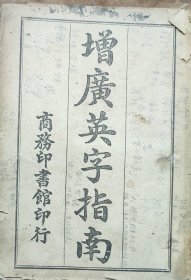 增廣英字指南
商務印書館印行